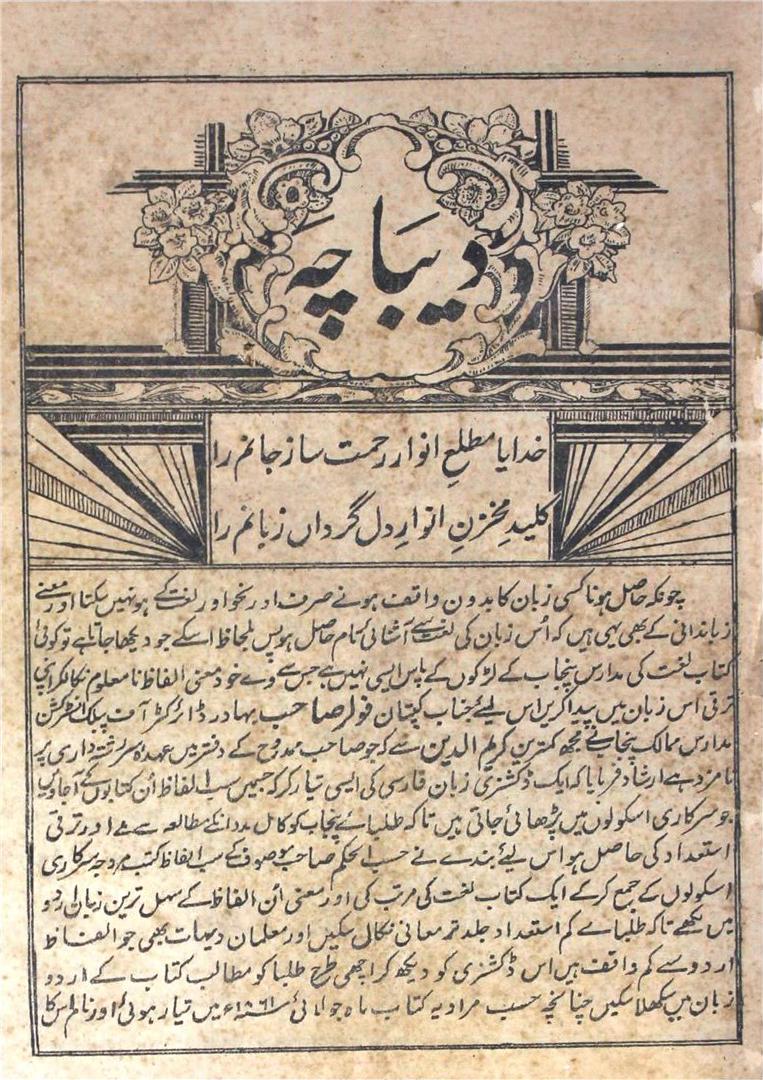 دیبَاچَہ
خدایا مطلعِ انوار رحمت ساز جانم را
کلیدِ مخزنِ انوارِ دل گرداں زبانم را
چونکہ حاصل ہونا کسی زبان کا بدون واقف ہونے صرف اور نحو اور لغت کے ہو نہیں سکتا اور معنے
زباندانی کے بھی یہی ہیں کہ اُس زبان کی لغت سے آشنائی تمام حاصل ہو پس بلحاظ اسکے جو دیکھا جاتا ہے تو کوئی
کتاب لغت کی مدارس پنجاب کے لڑکوں کے پاس ایسی نہیں ہے جس سے وے خود معنی الفاظ نامعلوم نکالکر اپنی
ترقی اس زبان میں پیدا کریں اس لیئے جناب کپتان فولر صاحب بہادر ڈائرکٹر آف پبلک انسٹرکشن
مدارس ممالک پنجاب نے مجھ کمترین کریم الدین سے کہ جو صاحب ممدوح کے دفتر میں عہدہ سررشتہ داری پر
نامزد ہے ارشاد فرمایا کہ ایک ڈکشنری زبان فارسی کی ایسی تیار کر کہ جسمیں سب الفاظ اُن کتابوں کے آجاویں
جو سرکاری اسکولوں میں پڑھائی جاتی ہیں تاکہ طلبائے پنجاب کو کامل مدد انکے مطالعہ سے ملے اور ترقی
استعداد کی حاصل ہو اس لیئے بندے نے حسب الحکم صاحب موصوف کے سب الفاظ کتب مروجہ سرکاری
اسکولوں کے جمع کرکے ایک کتاب لغت کی مرتب کی اور معنی اُن الفاظ کے سہل ترین زبان اردو
میں لکھے تاکہ طلبائے کم استعداد جلد تر معانی نکال سکیں اور معلمان دیہات بھی جو الفاظ
اردو سے کم واقف ہیں اس ڈکشنری کو دیکھ کر اچھی طرح طلبا کو مطالب کتاب کے اردو
زبان میں سکھلا سکیں چنانچہ حسب مراد یہ کتاب ماہ جولائی ۱۸۶۱ء میں تیار ہوئی اور نام اس کا